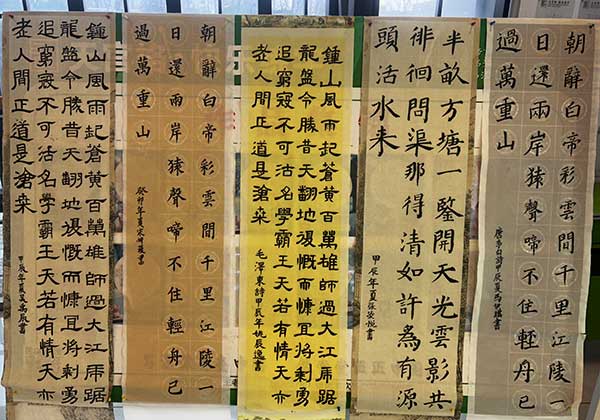 朝辭白帝彩雲間千里江陵一
日還兩岸猿聲啼不住輕舟已
過萬重山
唐李白詩甲辰夏馬書
半畝方塘一鑒開天光雲影共
徘徊問渠那得清如許為有源
頭活水來
甲辰年夏張悅書
鍾山風雨起蒼黃百萬雄師過大江虎踞
龍盤今勝昔天翻地覆慨而慷宜將剩勇
追窮寇不可沽名學霸王天若有情天亦
老人間正道是滄桑
毛澤東詩甲辰年姚辰逸書
朝辭白帝彩雲間千里江陵一
日還兩岸猿聲啼不住輕舟已
過萬重山
癸卯年夏宋書
鍾山風雨起蒼黃百萬雄師過大江虎踞
龍盤今勝昔天翻地覆慨而慷宜將剩勇
追窮寇不可沽名學霸王天若有情天亦
老人間正道是滄桑
甲辰年夏書